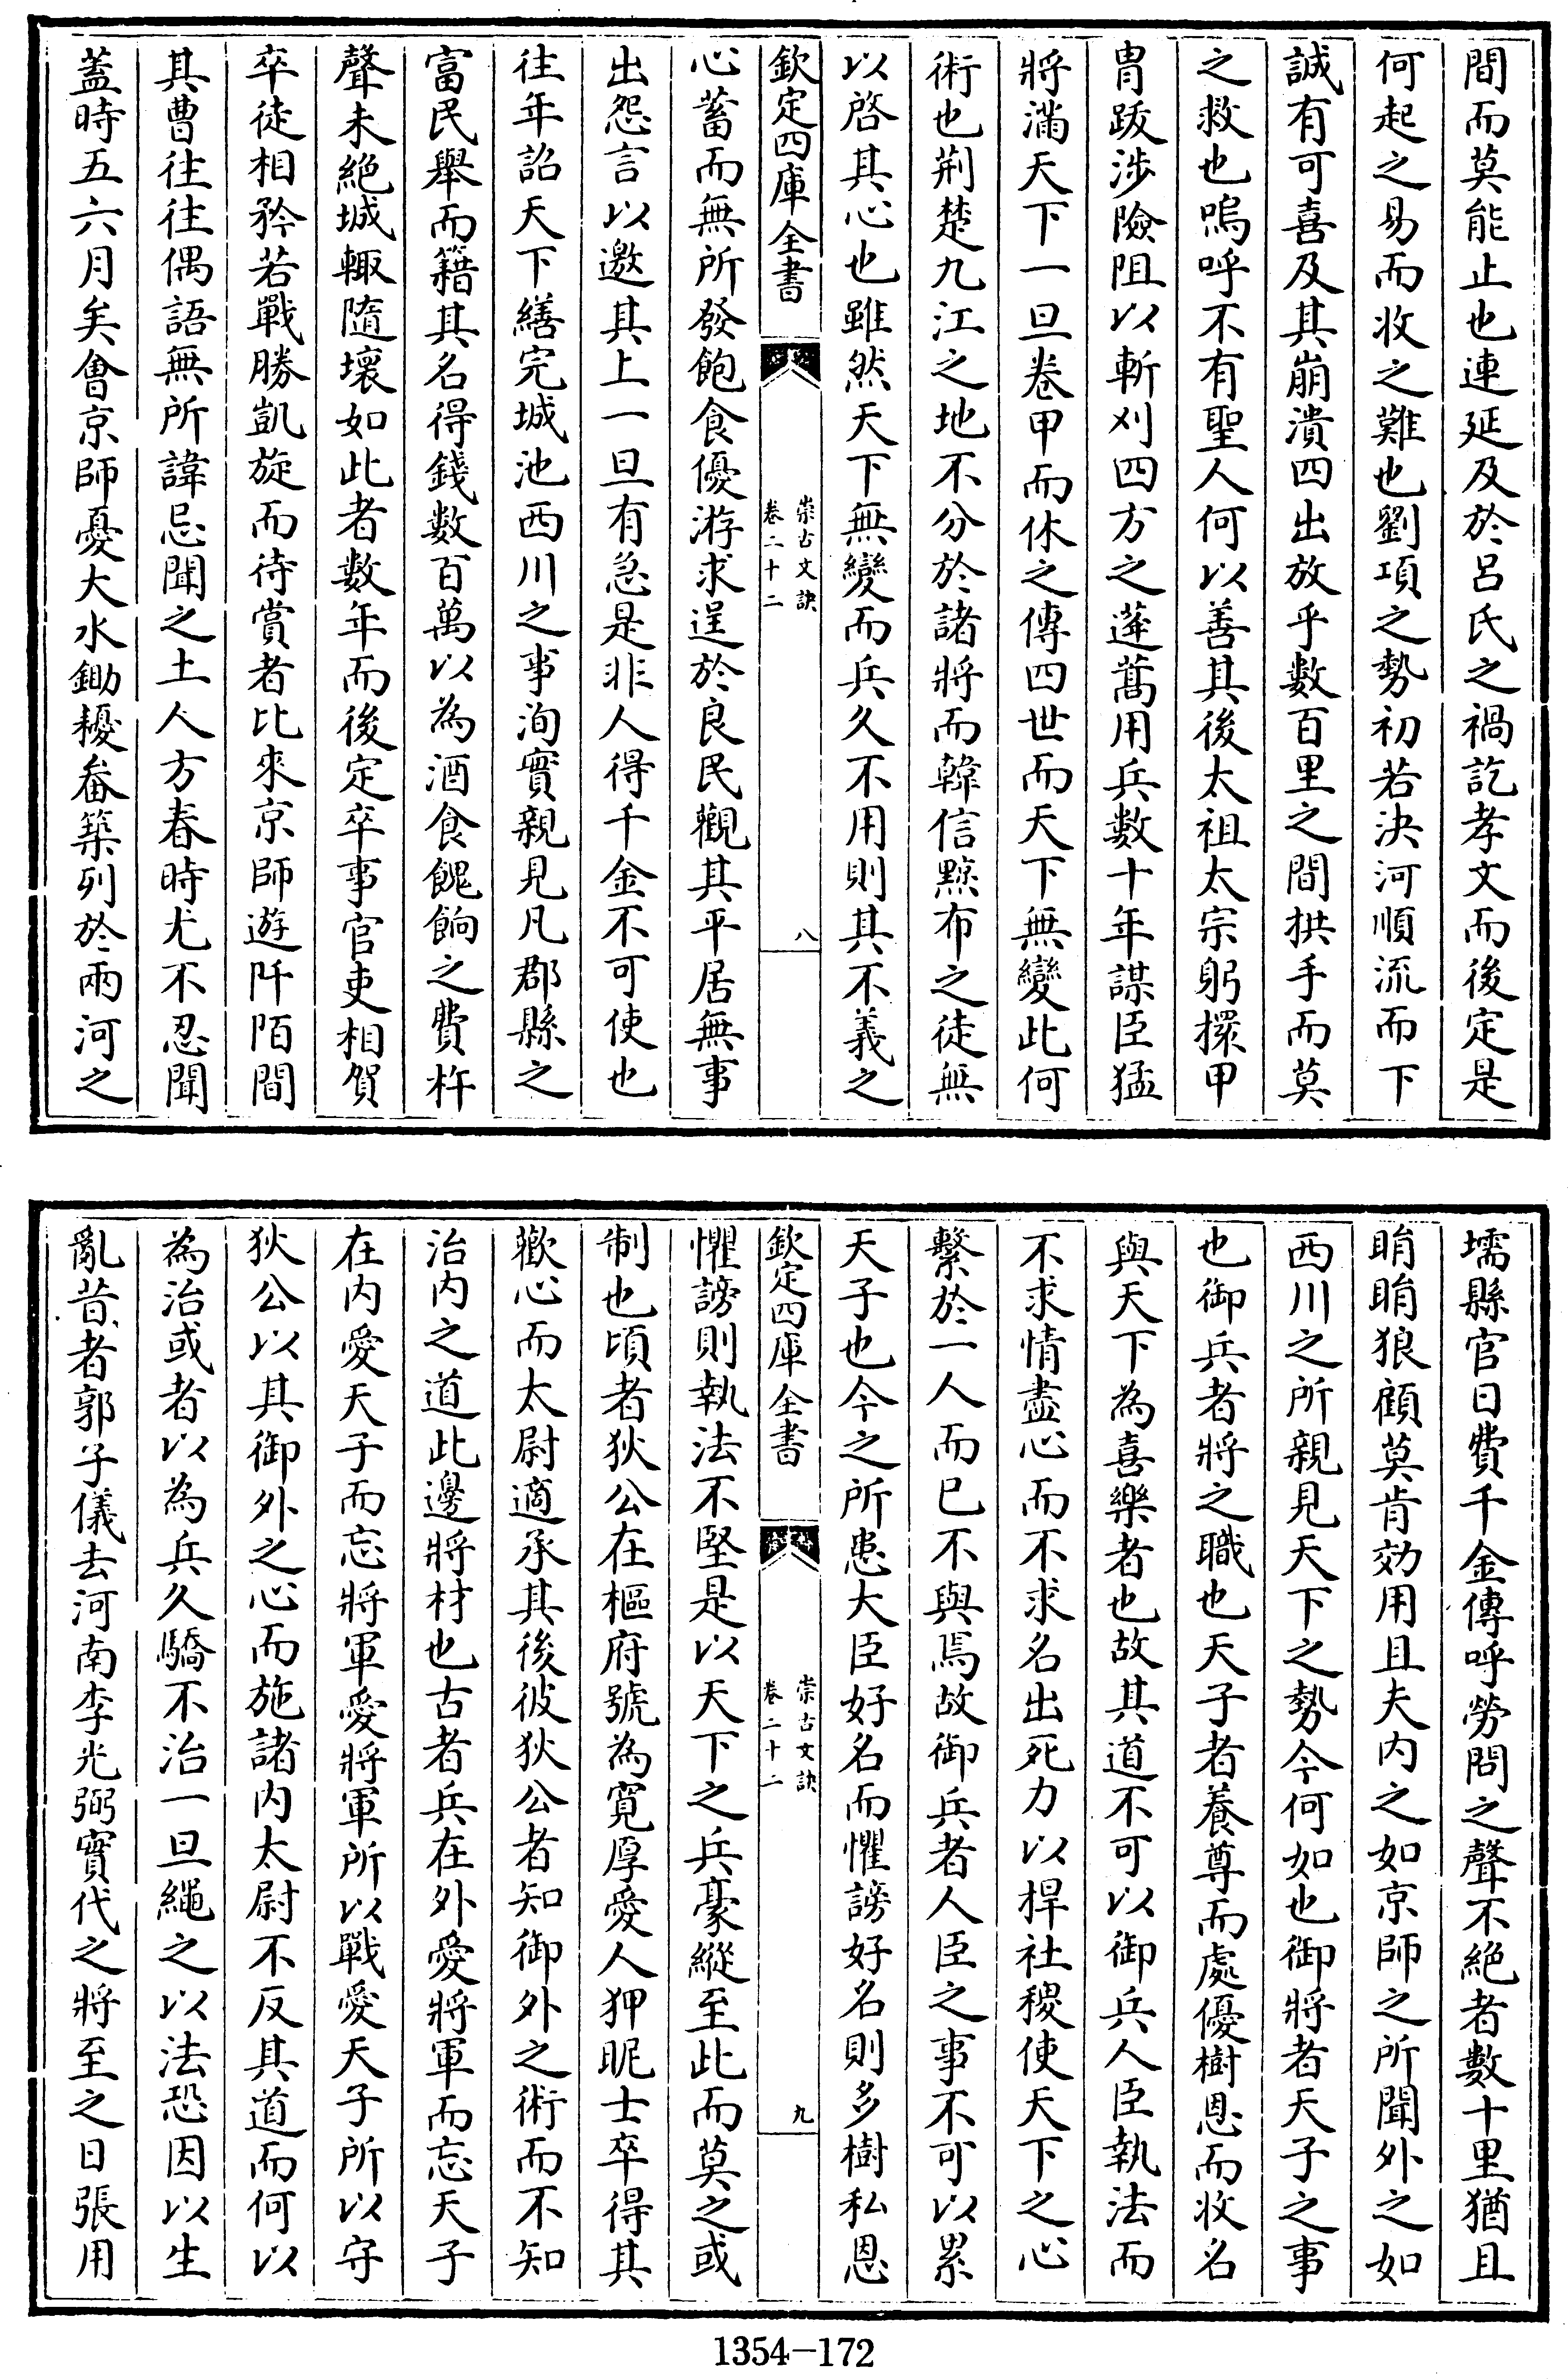 間而莫能止也連延及於呂氏之禍訖孝文而後定是
何起之易而收之難也劉項之勢初若決河順流而下
誠有可喜及其崩潰四出放乎數百里之間拱手而莫
之救也嗚呼不有聖人何以善其後太祖太宗躬擐甲
胄跋涉險阻以斬刈四方之蓬蒿用兵數十年謀臣猛
將滿天下一旦卷甲而休之傳四世而天下無變此何
術也荆楚九江之地不分於諸將而韓信黥布之徒無
以啓其心也雖然天下無變而兵久不用則其不義之
欽定四庫全書
崇古文訣
卷二十二
八
心蓄而無所發飽食優游求逞於良民觀其平居無事
出怨言以邀其上一旦有急是非人得千金不可使也
往年詔天下繕完城池西川之事洵實親見凡郡縣之
富民舉而籍其名得錢數百萬以為酒食餽餉之費杵
聲未絶城輙隨壞如此者數年而後定卒事官吏相賀
卒徒相矜若戰勝凱旋而待賞者比來京師遊阡陌間
其曹往往偶語無所諱忌聞之土人方春時尤不忍聞
蓋時五六月矣會京師憂大水鋤耰畚築列於兩河之
壖縣官日費千金傳呼勞問之聲不絶者數十里猶且
睊睊狼顧莫肯効用且夫内之如京師之所聞外之如
西川之所親見天下之勢今何如也御將者天子之事
也御兵者將之職也天子者養尊而處優樹恩而收名
與天下為喜樂者也故其道不可以御兵人臣執法而
不求情盡心而不求名出死力以捍社稷使天下之心
繫於一人而已不與焉故御兵者人臣之事不可以累
天子也今之所患大臣好名而懼謗好名則多樹私恩
欽定四庫全書
崇古文訣
卷二十二
九
懼謗則執法不堅是以天下之兵豪縱至此而莫之或
制也頃者狄公在樞府號為寛厚愛人狎昵士卒得其
歡心而太尉適承其後彼狄公者知御外之術而不知
治内之道此邊將材也古者兵在外愛將軍而忘天子
在内愛天子而忘將軍愛將軍所以戰愛天子所以守
狄公以其御外之心而施諸内太尉不反其道而何以
為治或者以為兵久驕不治一旦繩之以法恐因以生
亂昔者郭子儀去河南李光弼實代之將至之日張用
1354-172